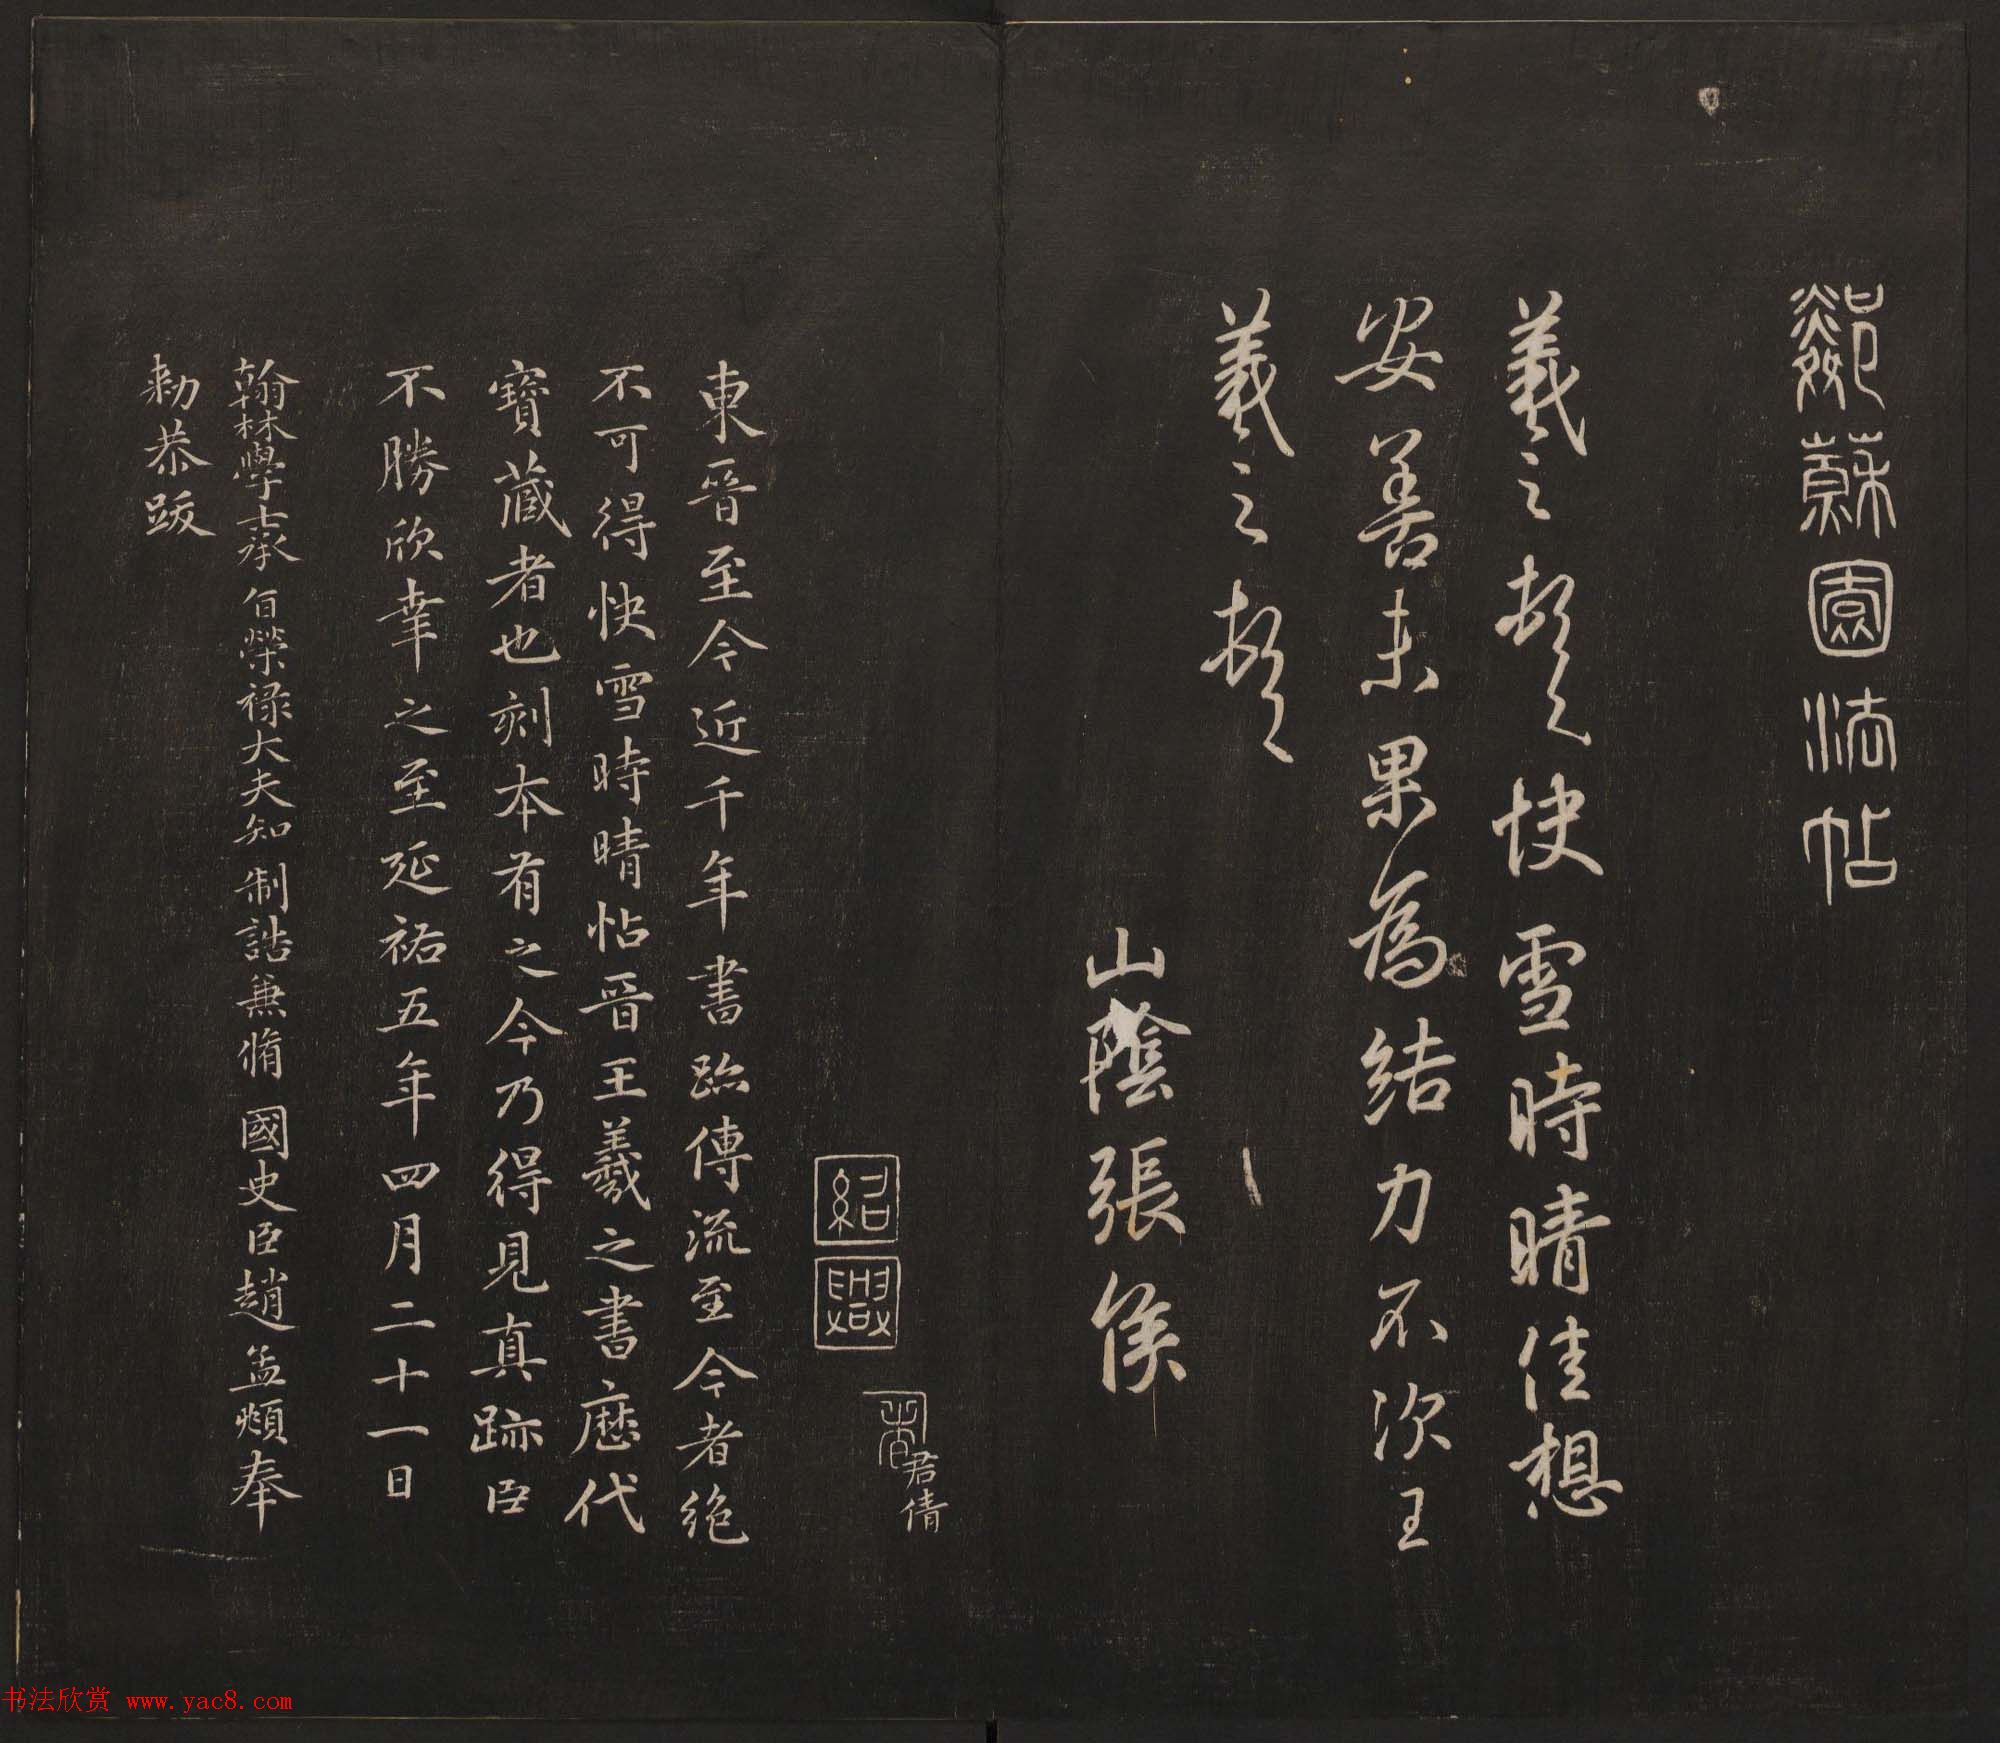 鄰蘇園法帖
羲之頓首快雪時晴佳想
安善未果為結力不次王
羲之頓首
山陰張侯
紹興
君倩
東晉至今近千年書跡傳流至今者絶
不可得快雪時晴帖晉王羲之書歷代
寶藏者也刻本有之今乃得見真跡臣
不勝欣幸之至延祐五年四月二十一日
翰林學士承旨榮祿大夫知制誥兼脩國史臣趙孟頫奉
勅恭跋
书法欣赏 www.yac8.com